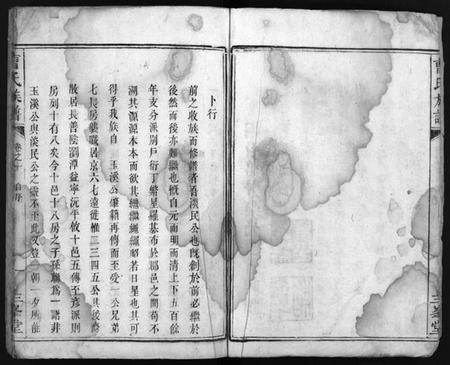 卜行
前之收族而修譜者首漢民公也既創於前必繼於
後然而後亦難繼也慨自元而明而清上下五百餘
年支分派別戶衍丁繁星羅基布於鄰邑之間苟不
溯其源源本本而欲其繼繼繩繩昭若日星也其可
得乎我族自 玉溪公肇籍再傳而至受一公兄弟
七長房 職居京六七遠徙惟二三四五公其後裔
散居長善 瀏潭益寧沅平攸十邑五傳至 派則
房列十有八矣今十邑十八房之子孫聯為一譜非
玉溪公與漢民公之靈不至此又豈一朝一夕所能
曹氏族譜
卷之
自序
三峯堂
曹氏族譜
三峯堂